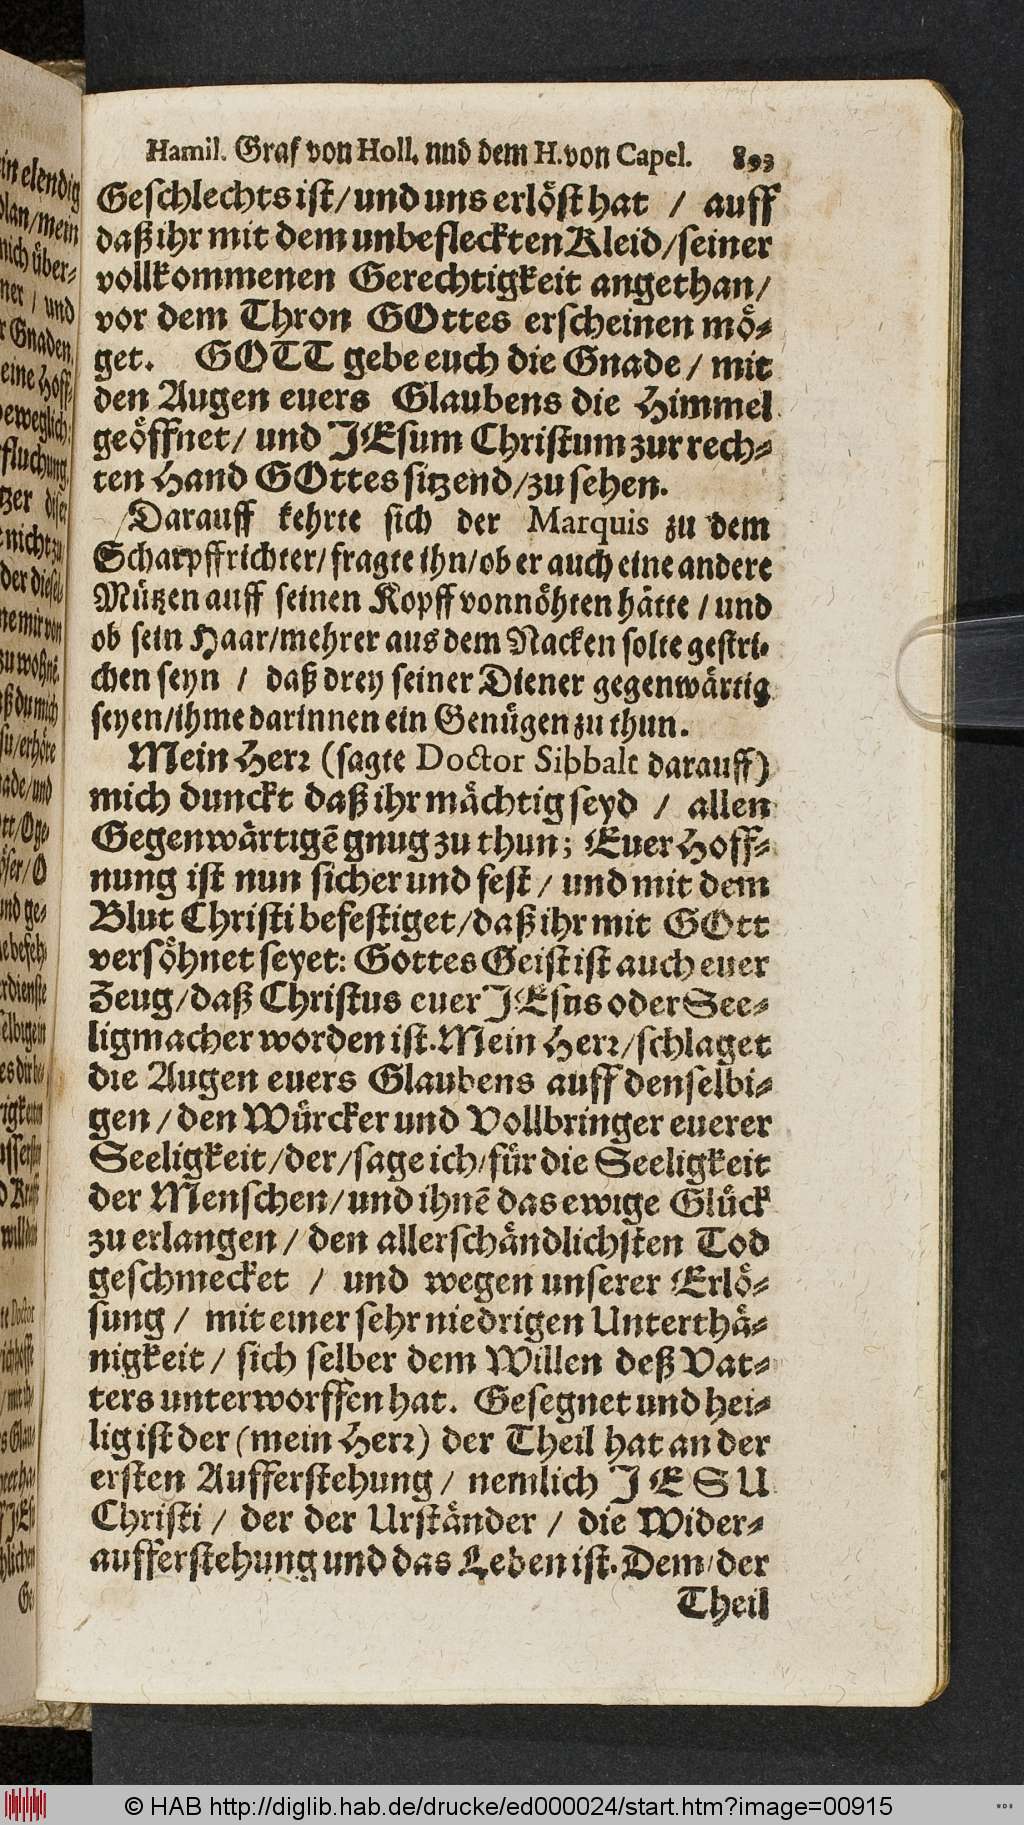 Hamil. Graf von Holl. nnd dem H. von Capel. 893
Geschlechts ist / und uns erlöst hat / auff
daß ihr mit dem unbefleckten Kleid / seiner
vollkommenen Gerechtigkeit angethan /
vor dem Thron GOttes erscheinen mö-
get. GOTT gebe euch die Gnade / mit
den Augen euers Glaubens die Himmel
geöffnet / und JEsum Christum zur rech-
ten Hand GOttes sitzend / zu sehen.
Darauff kehrte sich der Marquis zu dem
Scharpffrichter / fragte ihn / ob er auch eine andere
Mützen auff seinen Kopff vonnöhten hätte / und
ob sein Haar / mehrer aus dem Nacken solte gestri-
chen seyn / daß drey seiner Diener gegenwärtig
seyen / ihme darinnen ein Genügen zu thun.
Mein Herr (sagte Doctor Sibbalt darauff)
mich dunckt daß ihr mächtig seyd / allen
Gegenwärtigẽ gnug zu thun; Euer Hoff-
nung ist nun sicher und fest / und mit dem
Blut Christi befestiget / daß ihr mit GOtt
versöhnet seyet: Gottes Geist ist auch euer
Zeug / daß Christus euer JEsus oder See-
ligmacher worden ist. Mein Herr / schlaget
die Augen euers Glaubens auff denselbi-
gen / den Würcker und Vollbringer euerer
Seeligkeit / der / sage ich / für die Seeligkeit
der Menschen / und ihnẽ das ewige Glück
zu erlangen / den allerschändlichsten Tod
geschmecket / und wegen unserer Erlö-
sung / mit einer sehr niedrigen Unterthä-
nigkeit / sich selber dem Willen deß Vat-
ters unterworffen hat. Gesegnet und hei-
lig ist der (mein Herr) der Theil hat an der
ersten Aufferstehung / nemlich JESU
Christi / der der Urständer / die Wider-
aufferstehung und das Leben ist. Dem / der
Theil
© HAB http://diglib.hab.de/drucke/ed000024/start.htm?image=00915